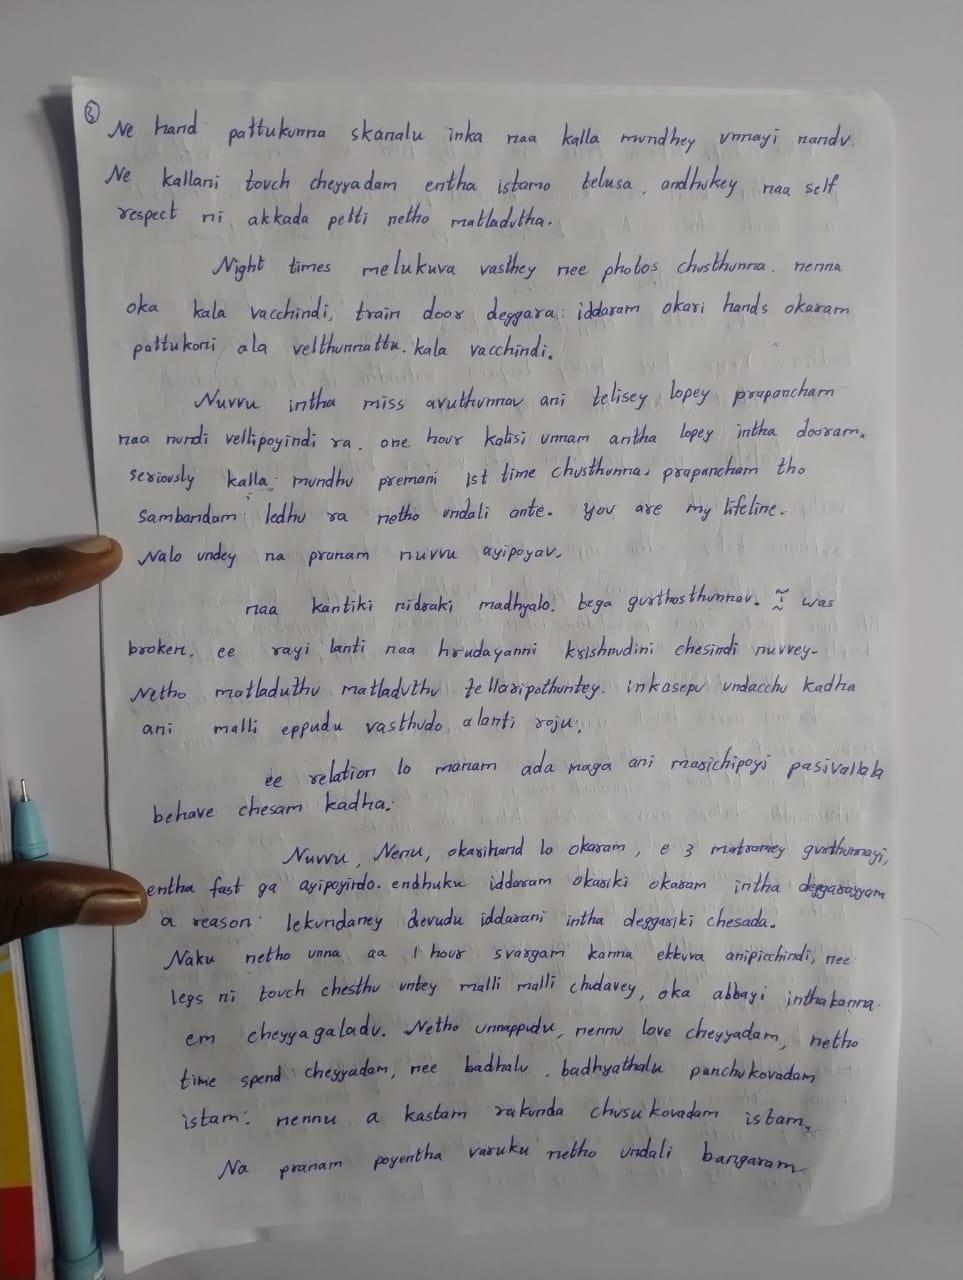 ③
Ne hand pattukunna skanalu inka naa kalla mundhey unnayi nandu.
Ne kallani touch cheyyadam entha istamo telusa, andhukey naa self
respect ni akkada petti netho matladutha.
Night times melukuva vasthey nee photos chusthunna. nenna
oka kala vacchindi, train door deggara: iddaram okari hands okaram
pattukoni ala velthunnattu. kala vacchindi.
Nuvvu intha miss avuthunnav ani telisey lopey prapancham
naa nundi vellipoyindi ra. one hour kalisi unnam antha lopey intha dooram.
seriously kalla mundhu premani 1st time chusthunna. prapancham tho
sambandam ledhu ra netho undali ante. You are my lifeline.
Nalo undey na pranam nuvvu ayipoyav.
naa kantiki nidraki madhyalo. bega gurthosthunnav. I was
broken. ee rayi lanti naa hrudayanni krishnudini chesindi nuvvey-
Netho matladuthu matladuthu tellaripothuntey. inkasepu undacchu kadha
ani malli eppudu vasthudo alanti roju.
ee relation lo manam ada maga ani marichipoyi pasivallala
behave chesam kadha.
Nuvvu, Nenu, okarihand lo okaram, e 3 matramey gurthunnayi,
entha fast ga ayipoyindo. endhuku iddaram okariki okaram intha deggarayyam
a reason lekundaney devudu iddarani intha deggariki chesada.
Naku netho unna aa 1 hour svargam kanna ekkuva anipicchindi, nee
legs ni touch chesthu untey malli malli chudavey, oka abbayi inthakanna.
em cheyyagaladu. Netho unnappudu, nennu love cheyyadam, netho
time spend cheyyadam, nee badhalu, badhyathalu panchukovadam
istam. nennu a kastam rakunda chusukovadam istam.
Na pranam poyentha varuku netho undali bangaram